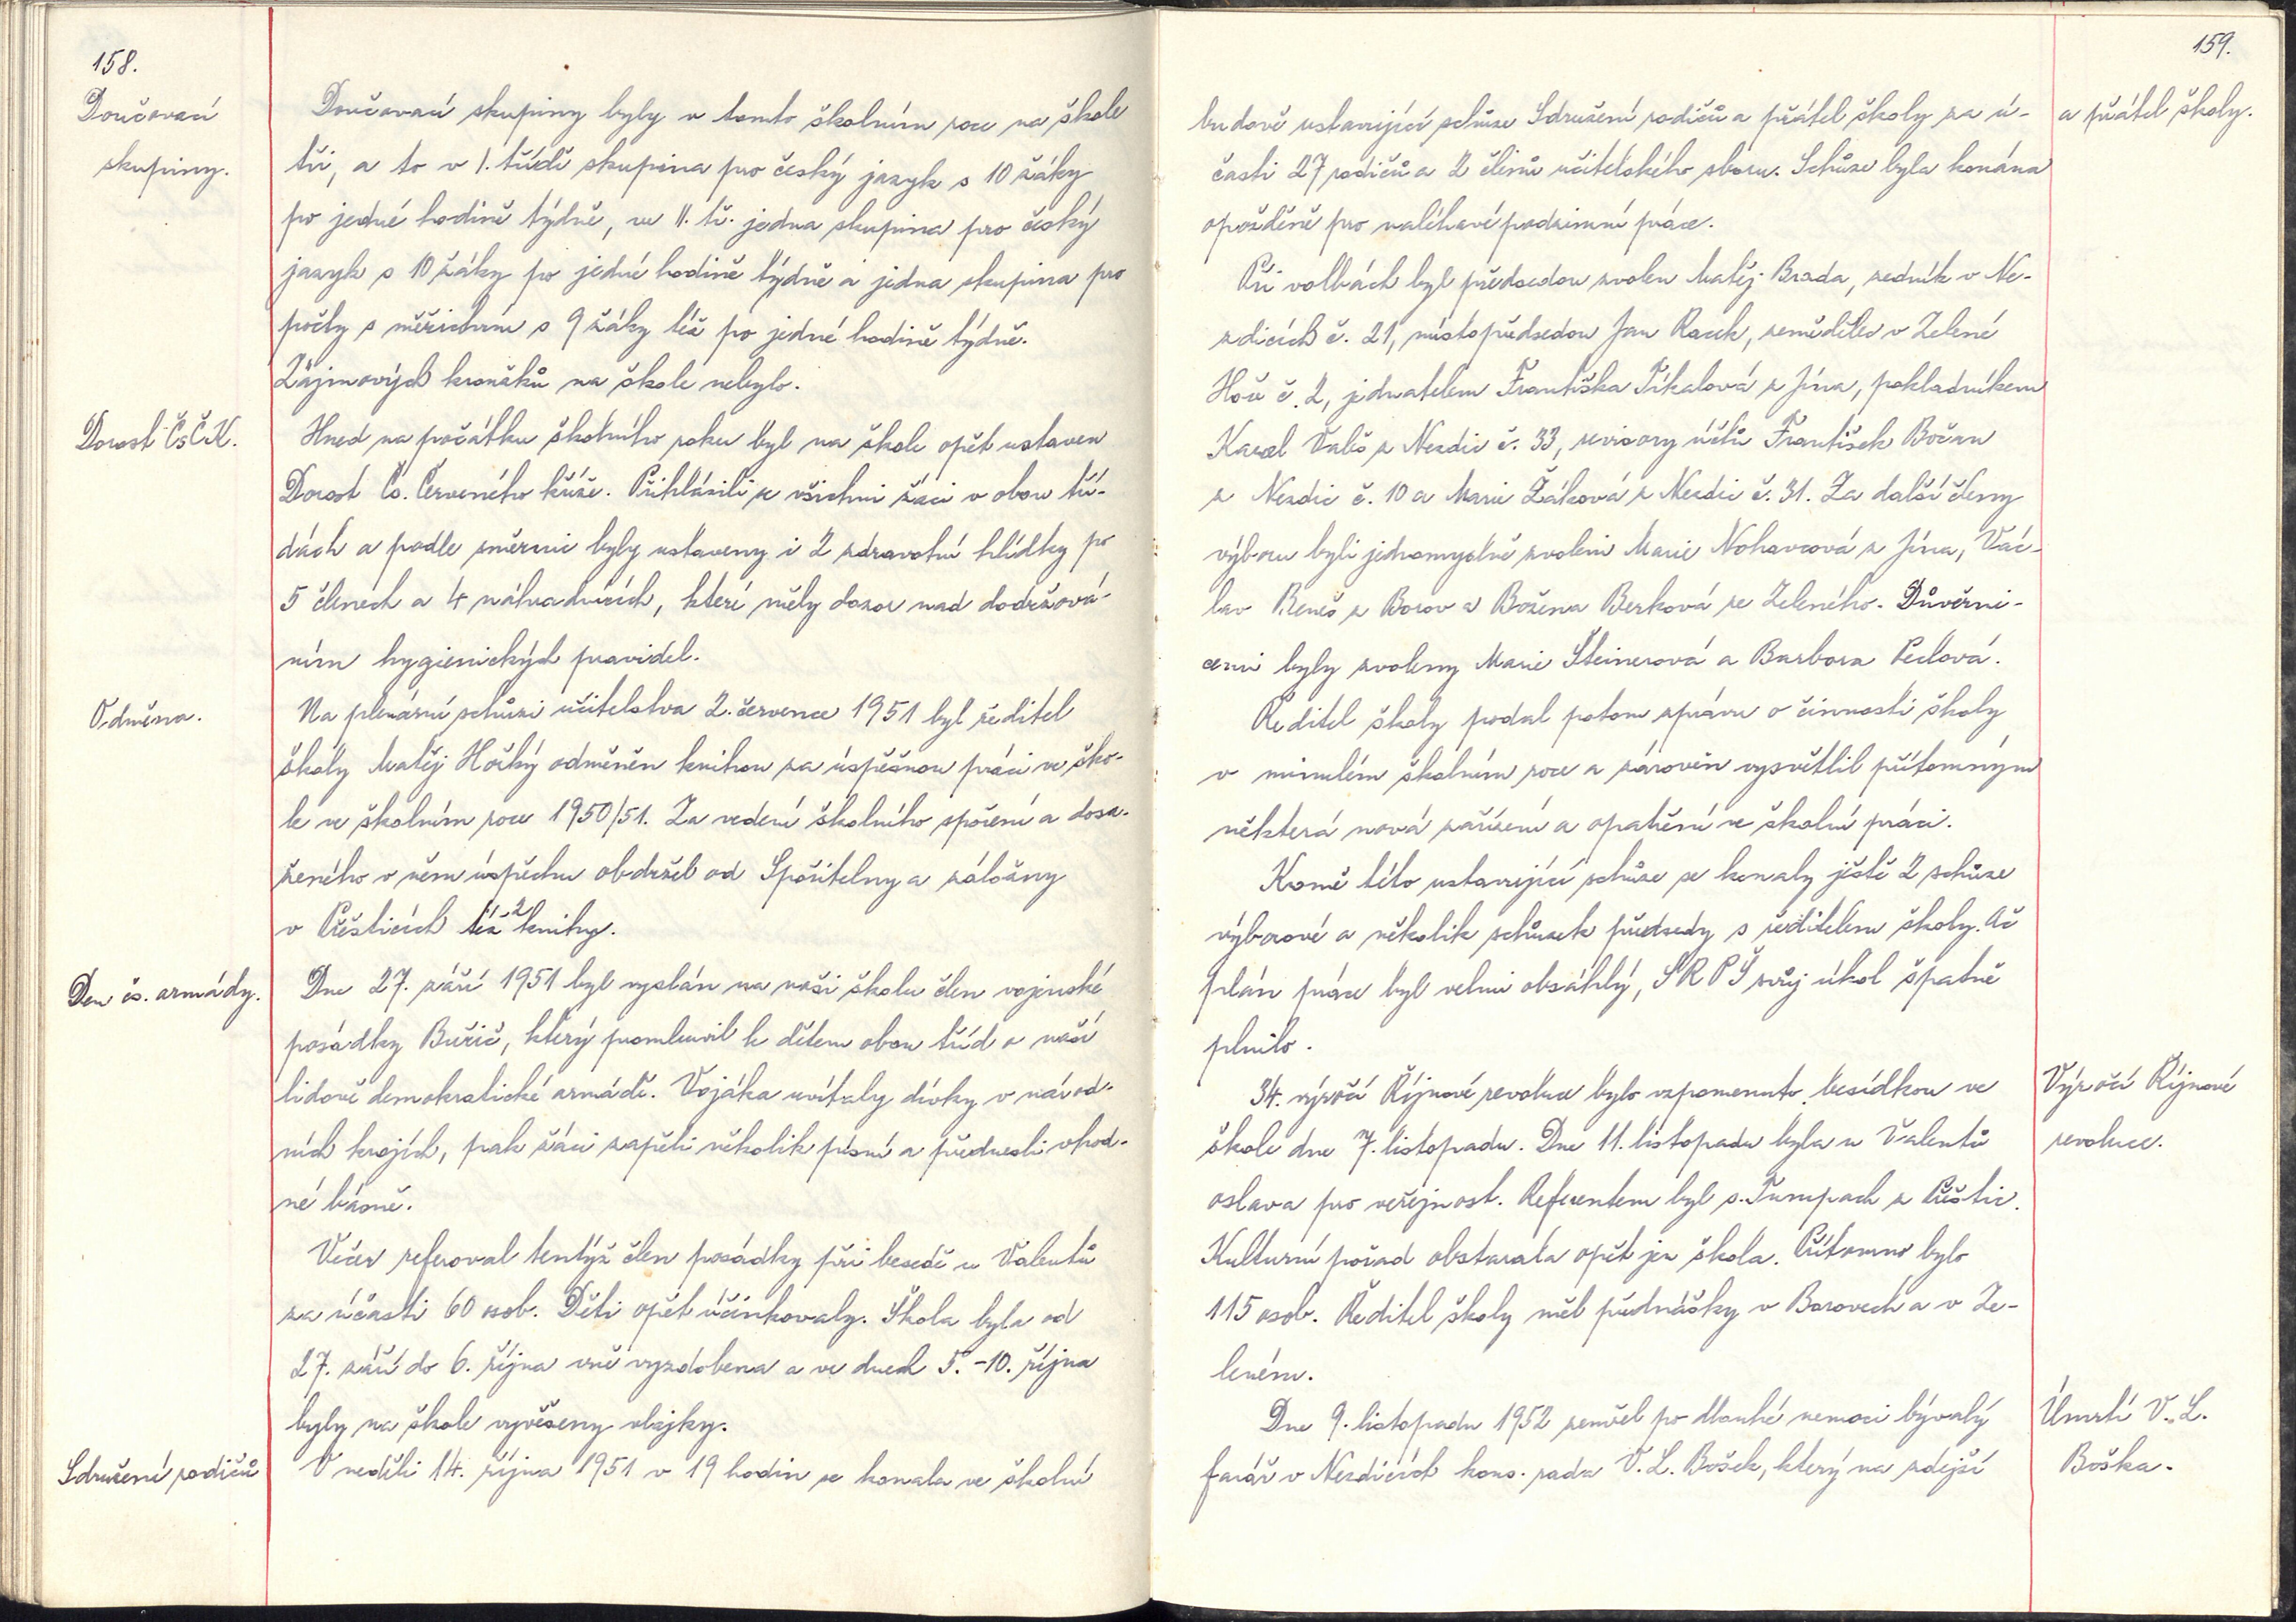 158.
Doučovací
skupiny.
Doučovací skupiny byly v tomto školním roce na škole
tři, a to v I. třídě skupina pro český jazyk s 10 žáky
po jedné hodině týdně, ve II. tř. jedna skupina pro český
jazyk s 10 žáky po jedné hodině týdně a jedna skupina pro
počty s měřictvím s 9 žáky též po jedné hodině týdně.
Zájmových kroužků na škole nebylo.
Dorost ČsČK.
Hned na počátku školního roku byl na škole opět ustaven
Dorost Čs. Červeného kříže. Přihlásili se všichni žáci v obou tří-
dách a podle směrnic byly ustaveny i 2 zdravotní hlídky po
5 členech a 4 náhradnících, které měly dozor nad dodržová-
ním hygienických pravidel.
Odměna.
Na plenární schůzi učitelstva 2. července 1951 byl ředitel
školy Matěj Hořký odměněn knihou za úspěšnou práci ve ško-
le ve školním roce 1950/51. Za vedení školního spoření a dosa-
ženého v něm úspěchu obdržel od Spořitelny a záložny
v Přešticích též 2 knihy.
Den čs. armády.
Dne 27. září 1951 byl vyslán na naši školu člen vojenské
posádky Buřič, který promluvil k dětem obou tříd o naší
lidově demokratické armádě. Vojáka uvítaly dívky v národ-
ních krojích, pak žáci zapěli několik písní a přednesli vhod-
né básně.
Večer referoval tentýž člen posádky při besedě u Valentů
za účasti 60 osob. Děti opět účinkovaly. Škola byla od
27. září do 6. října vně vyzdobena a ve dnech 5.-10. října
byly na škole vyvěšeny vlajky.
Sdružení rodičů
V neděli 14. října 1951 v 19 hodin se konala ve školní
159.
a přátel školy.
budově ustavující schůze Sdružení rodičů a přátel školy za ú-
časti 27 rodičů a 2 členů učitelského sboru. Schůze byla konána
opožděně pro naléhavé podzimní práce.
Při volbách byl předsedou zvolen Matěj Brada, zedník v Ne-
zdicích č. 21, místopředsedou Jan Racek, zemědělec v Zelené
Hoře č. 2, jednatelem Františka Tikalová z Jína, pokladníkem
Karel Valeš z Nezdic č. 33, revisory účtů František Bočan
z Nezdic č. 10 a Marie Žáková z Nezdic č. 31. Za další členy
výboru byli jednomyslně zvoleni Marie Nohavcová z Jína, Vác-
lav Beneš z Borov a Božena Berková ze Zeleného. Důvěrni-
cemi byly zvoleny Marie Šteinerová a Barbora Peclová.
Ředitel školy podal potom zprávu o činnosti školy
v minulém školním roce a zároveň vysvětlil přítomným
některá nová zařízení a opatření ve školní práci.
Kromě této ustavující schůze se konaly ještě 2 schůze
výborové a několik schůzek předsedy s ředitelem školy. Ač
plán práce byl velmi obsáhlý, SRPŠ svůj úkol špatně
plnilo.
Výročí Říjnové
revoluce.
34. výročí Říjnové revoluce bylo vzpomenuto besídkou ve
škole dne 7. listopadu. Dne 11. listopadu byla u Valentů
oslava pro veřejnost. Referentem byl s. Tumpach z Přeštic.
Kulturní pořad obstarala opět jen škola. Přítomno bylo
115 osob. Ředitel školy měl přednášky v Borovech a v Ze-
leném.
Úmrtí V. L.
Boška.
Dne 9. listopadu 1952 zemřel po dlouhé nemoci bývalý
farář v Nezdicích kons. rada V. L. Bošek, který na zdejší